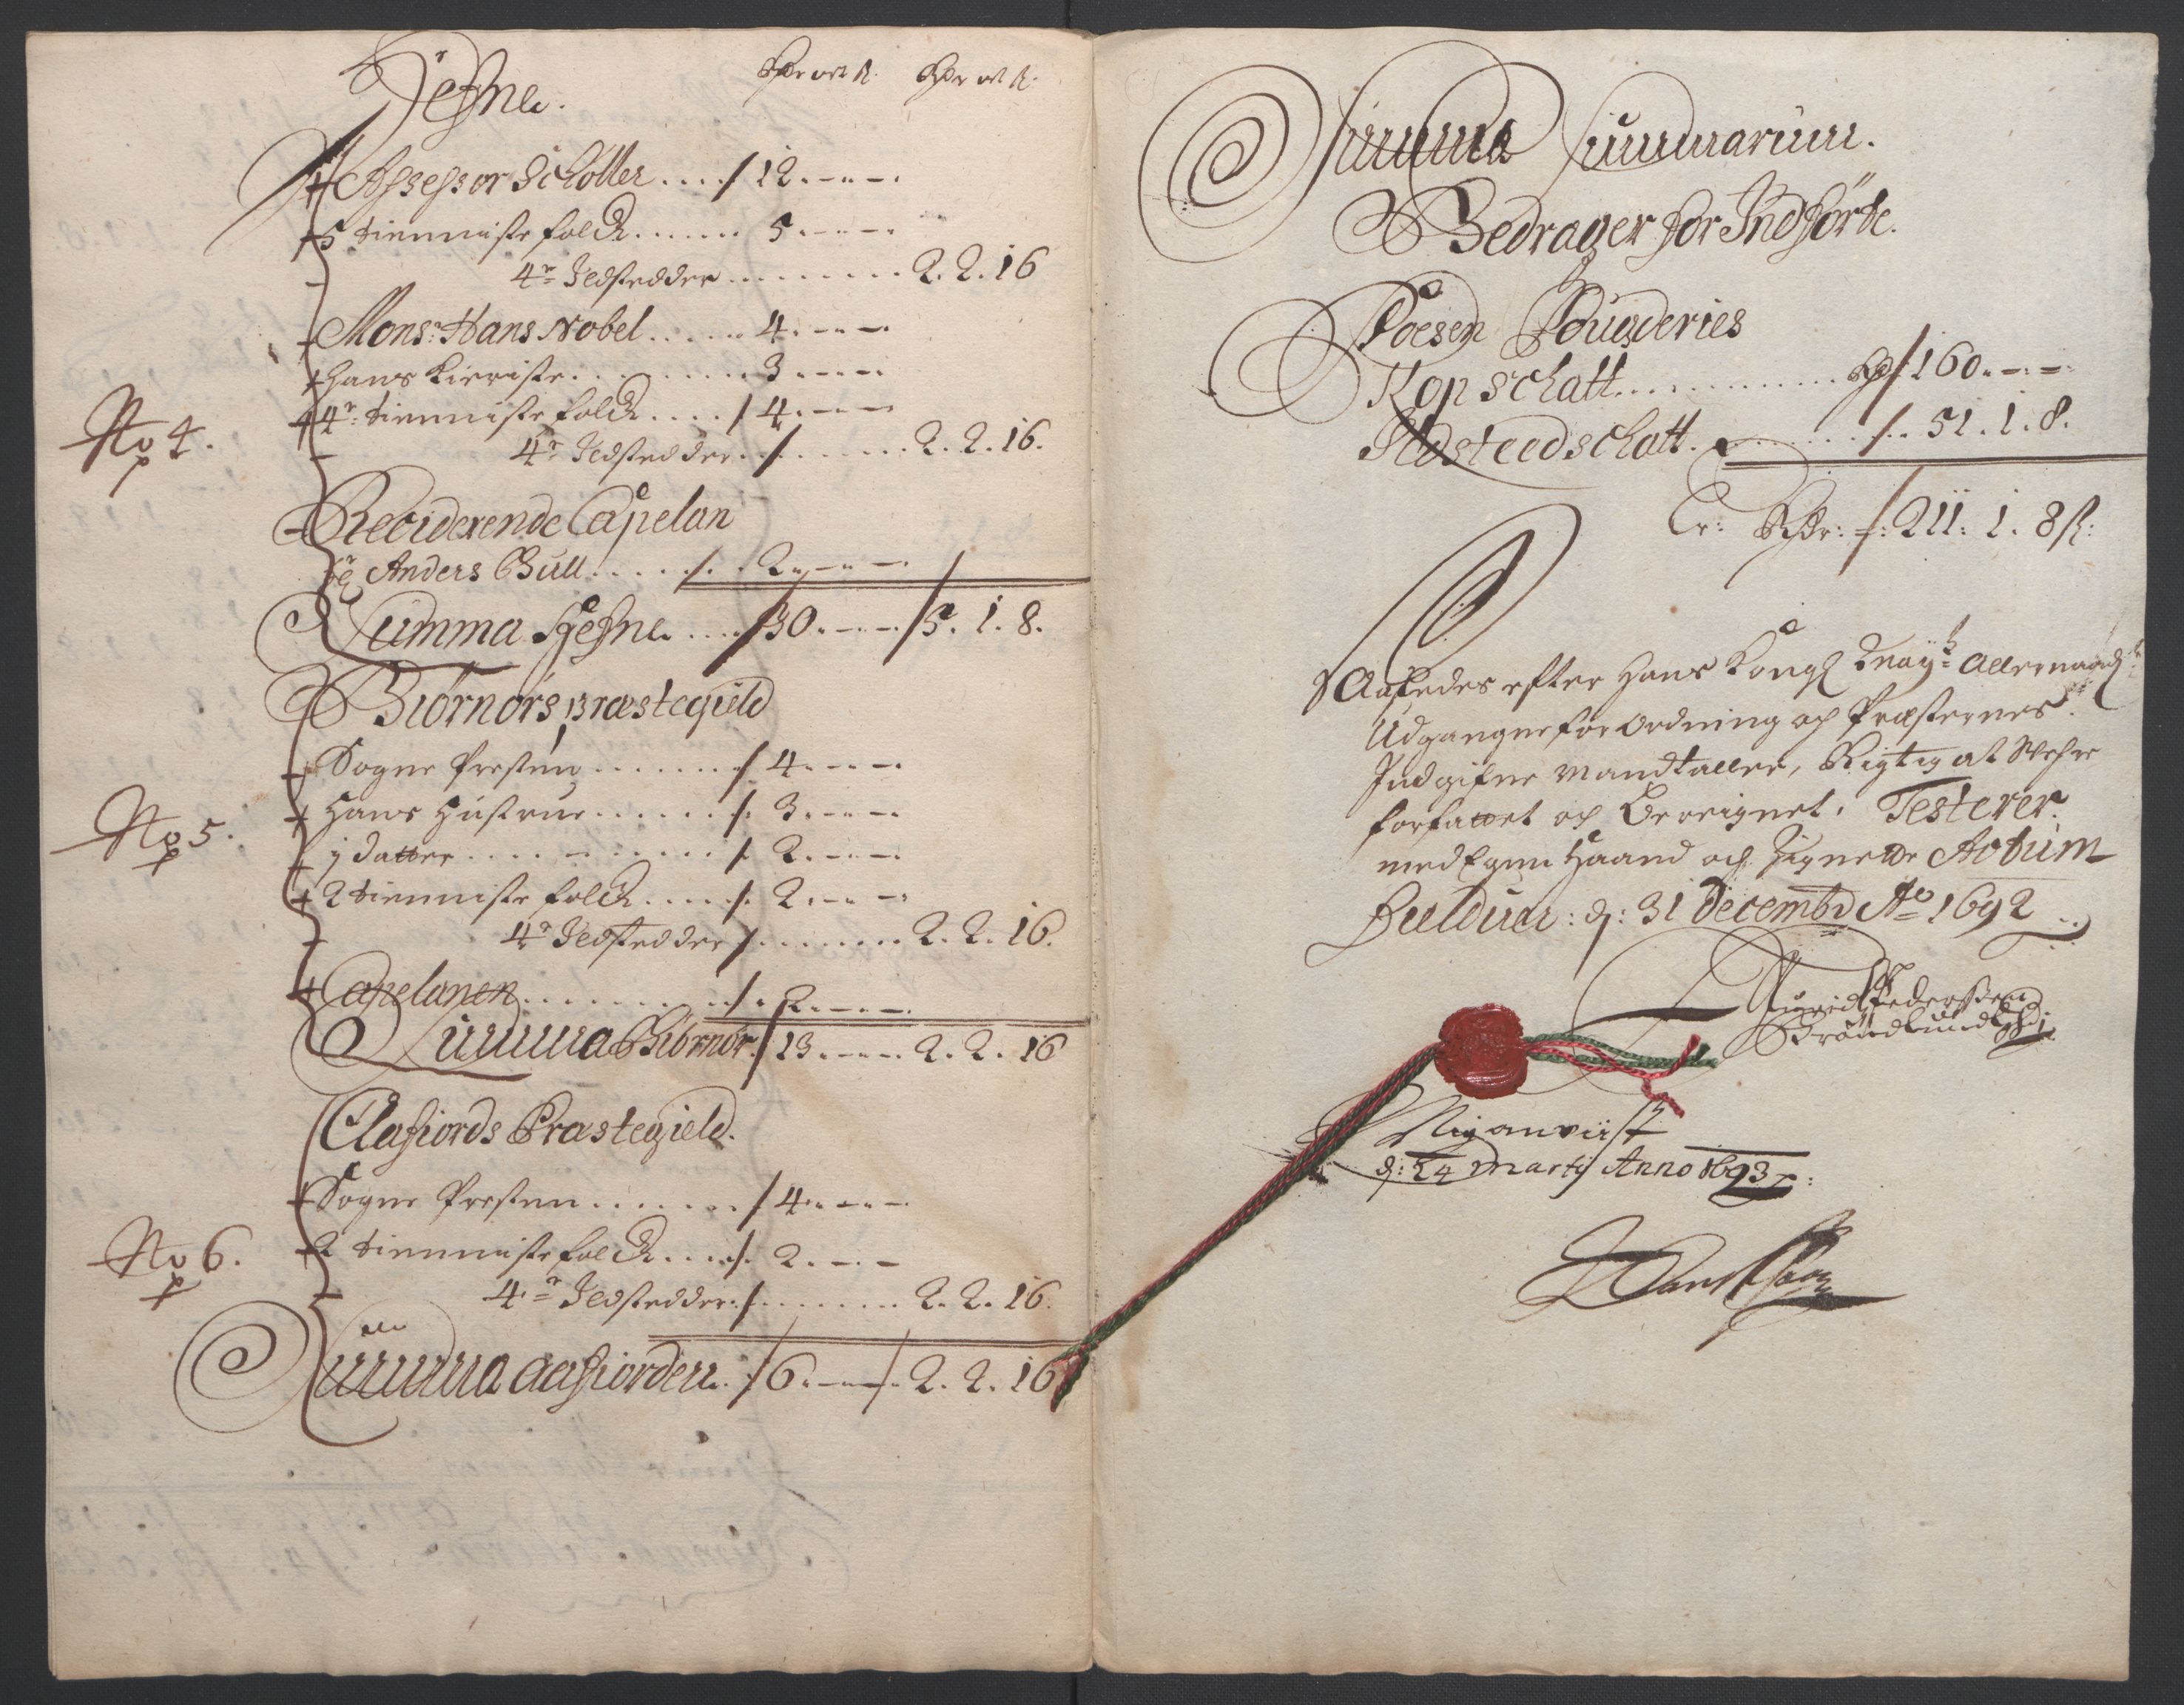 Jefne.
Rdr ort ß. Rdr ort ß.
Assessor Schöller .... / 12.----
5 tienniste folck ...... 5.----
4r Ildstedder ........ 2. 2. 16
Monsr: Hans Nobel ..... 4.----
Hans Kieriste ........ 3.----
4r: tienniste folck .... / 4.----
No 4.
4r Ildstedder ./...... 2. 2. 16.
Reciderende Capelan
Hr Anders Bull ..... /. 2.----
Summa Hefne .... / 30.---- / 5. 1. 8.
Biörnörs Præstegield
Sogne Presten ....... / 4.----
No 5.
Hans Hustrue ...... /. 3.----
j datter ........... / 2.----
2 tienniste folck .... /. 2.----
4r Ildstedder / ....... 2. 2. 16.
Capelanen ......... /. 2.----
Summa Biörnör / 13.---- 2. 2. 16
Aafiords Præstegield.
Sogne Presten ....... / 4.----
No 6.
2 tienniste folck .... /. 2.----
4r Ildstedder ./ ....... 2. 2. 16.
Summa Aafiorden. / 6.---- /. 2. 2. 16
Summa Summarum.
Bedrager for Indförte.
Foesen Fougderies
Kopschatt ............ Rdr / 160.----
Ildsteedschatt ......... /.. 51. 1. 8.
Er: Rdr: /: 211: 1. 8 ß:
Saaledes efter Hans Kongl Mayts Allernaadste
Udgangne forordning och Præsternes
Indgifne Mandtaller, Rigtig at Vehre
forfattet och Bereignet. Testerer.
med Egen Haand och Zignette Actum
d: 31 Decembr Ao 1692
Pederssen
Mig anviist
d: 24 Marty Anno 1693